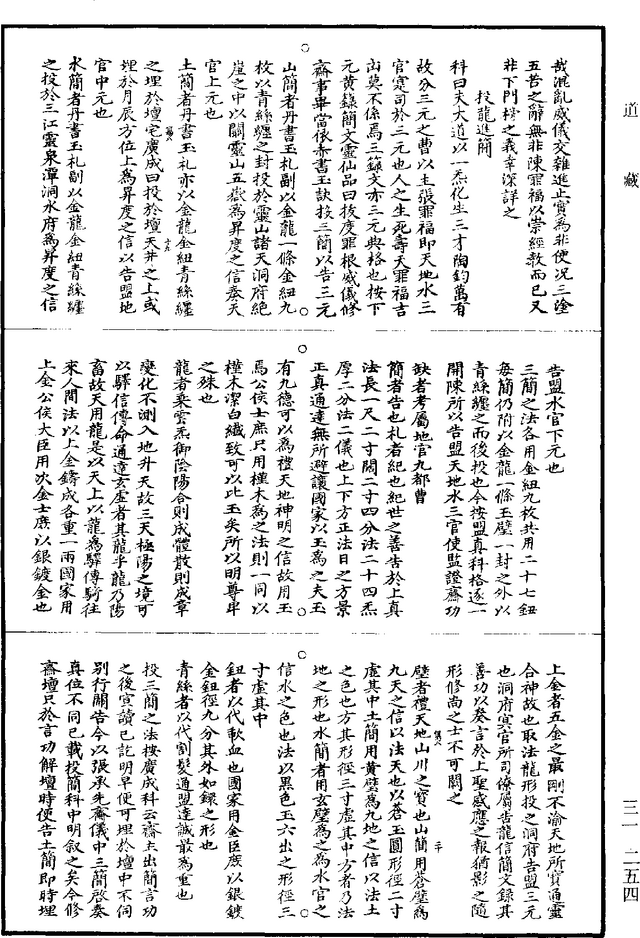 道藏
哉混亂威儀交雜進止實為非使況三塗
五苦之辭無非陳罪福以崇經教而已又
非下門榜之義幸深詳之
投龍進簡
科曰夫大道以一炁化生三才陶鈞萬有
故分三元之曹以主張罪福即天地水三
官寔司於三元也人之生死壽夭罪福吉
凶莫不係焉三籙文亦三元典格也按下
元黃籙簡文靈仙品曰拔度罪根威儀修
齋事畢當依赤書玉訣投三簡以告三元
山簡者丹書玉札副以金龍一條金紐九
枚以青絲纏之封投於靈山諸天洞府絕
崖之中以關靈山五嶽為昇度之信奏天
官上元也
土簡者丹書玉札亦以金龍金紐青絲纏
之埋於壇宅廣成曰投於壇天井之上或
埋於月辰方位上為昇度之信以告盟地
官中元也
水簡者丹書玉札副以金龍金紐青絲纏
之投於三江靈泉潭洞水府為昇度之信
告盟水官下元也
三簡之法各用金紐九枚共用二十七鈕
每簡仍附以金龍一條玉璧一封之外以
青絲纏之而後投也今按盟真科格逐一
開陳所以告盟天地水三官使監證齋功
缺者考屬地官九都曹
簡者告也札者紀也紀世之善告於上真
法長一尺二寸闊二十四分法二十四炁
厚二分法二儀也上下方正法日之方景
正真通達無所避讓國家以玉為之夫玉
有九德可以為禮天地神明之信故用玉
焉公侯士庶只用槿木為之法則一同以
槿木潔白纖緻可以比玉矣所以明尊卑
之殊也
龍者乘雲炁御陰陽合則成體散則成章
變化不測入地升天故三天極陽之境可
以驛信傳命通達玄虛者其龍乎龍乃陽
畜故天用龍是以天上以龍為驛傳騎往
來人間法以上金鑄成各重一兩國家用
上金公侯大臣用次金士庶以銀鍍金也
上金者五金之最剛不渝天地所寶通靈
合神故也取法龍形投之洞府告盟三元
也洞府冥官所司僚屬告龍信簡文錄其
善功以奏言於上聖感應之報猶影之隨
形修尚之士不可闕之
璧者禮天地山川之寶也山簡用蒼璧為
九天之信以法天也以蒼玉圓形徑二寸
虛其中土簡用黃璧為九地之信以法土
之色也方其形徑三寸虛其中方者乃法
地之形也水簡者用玄璧為之為水官之
信水之色也法以黑色玉六出之形徑三
寸虛其中
鈕者以代歃血也國家用金臣庶以銀鍍
金鈕徑九分其外如錄之形也
青絲者以代割髮通盟達誠最為重也
投三簡之法按廣成科云齋主出簡言功
之後宣讀已訖明早便可埋於壇中不伺
別行關告今以張承先齋儀中三簡啓奏
真位不同已載投簡科中明叙之矣今修
齋壇只於言功解壇時便告土簡即時埋
三一—二五四